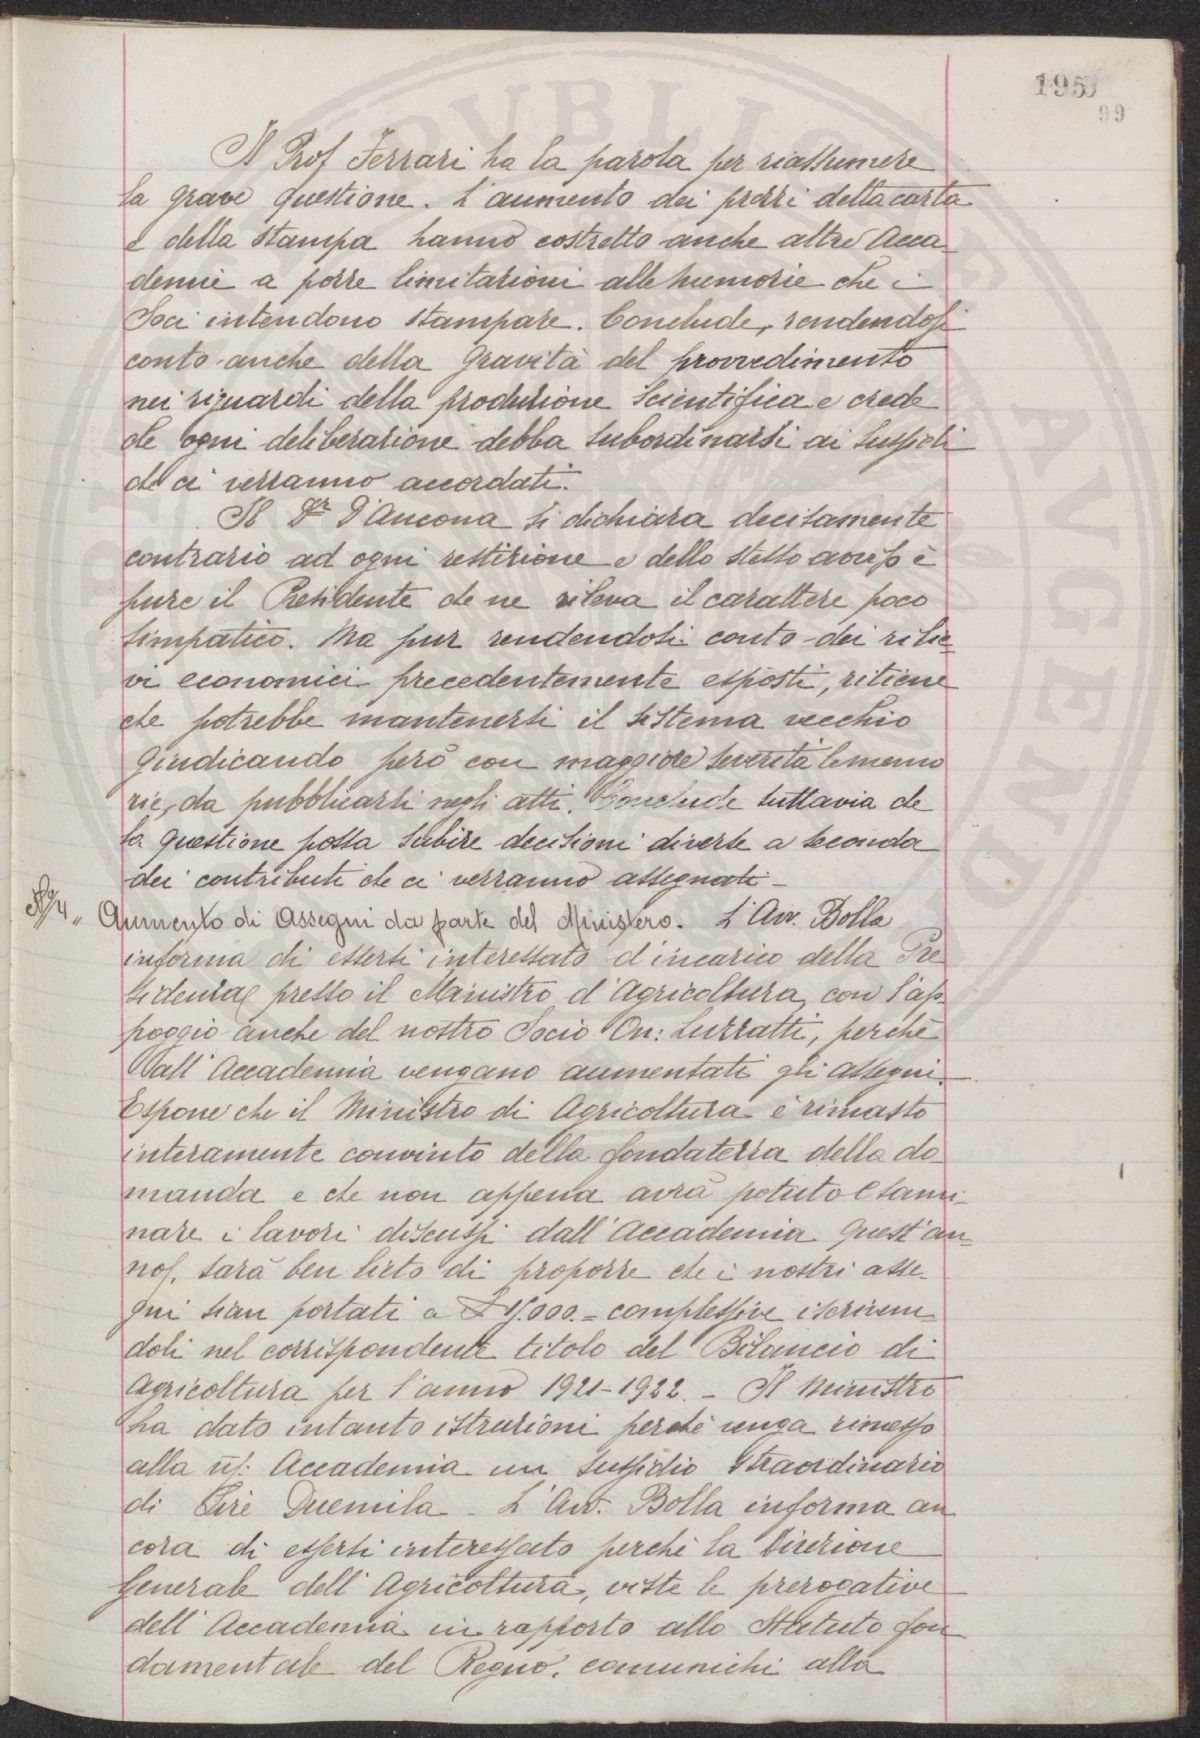 195
99
Il Prof Ferrari ha la parola per riassumere
la grave questione. L'aumento dei prezzi della carta
e della stampa hanno costretto anche altre Acca-
demie a porre limitazioni alle memorie che i
Soci intendono stampare. Conclude, rendendosi
conto anche della gravità del provvedimento
nei riguardi della produzione scientifica e crede
che ogni deliberazione debba subordinarsi ai sussidi
che ci verranno accordati.
Il Dr D'Ancona si dichiara decisamente
contrario ad ogni restizione e dello stesso avviso è
pure il Presidente che ne rileva il carattere poco
simpatico. Ma pur rendendosi conto dei rilie-
vi economici precedentemente esposti, ritiene
che potrebbe mantenersi il sistema vecchio
giudicando però con maggiore severità le memo
rie, da pubblicarsi negli atti. Conclude tuttavia che
la questione possa subire decisioni diverse a seconda
dei contributi che ci verranno assegnati -
No 4 „ Aumento di Assegni da parte del Ministero. L'Avv. Bolla
informa di essersi interessato d'incarico della Pre
sidenza presso il Ministro d'Agricoltura, con l'ap
poggio anche del nostro Socio On: Luzzatti, perchè
all'Accademia vengano aumentati gli assegni.
Espone che il Ministro di Agricoltura è rimasto
interamente convinto della fondatezza della do-
manda e che non appena avrà potuto esami-
nare i lavori discussi dall'Accademia quest'an-
no, sarà ben lieto di proporre che i nostri asse-
gni sian portati a complessive iscriven
doli nel corrispondente titolo del Bilancio di
Agricoltura per l'anno 1921-1922. - Il Ministro
ha dato intanto istruzioni perchè venga rimesso
alla ns: Accademia un sussidio straordinario
di Lire Duemila - L'Avv. Bolla informa an
cora di essersi interessato perchè la Direzione
Generale dell'Agricoltura, viste le prerogative
dell'Accademia in rapporto allo Statuto fon
damentale del Regno, comunichi alla